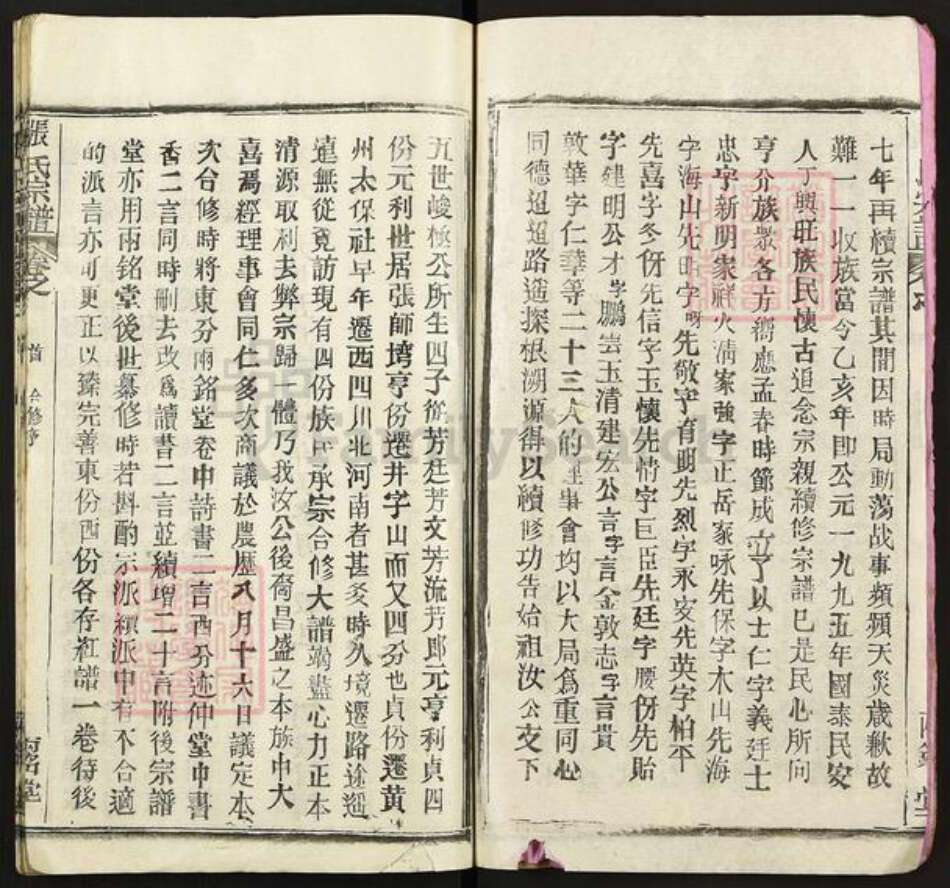 七年再續宗譜其間因時局動荡战事頻頻天災歲歉故
難一一收族當今乙亥年即公元一九九五年國泰民安
人丁興旺族民懷古追念宗親續修宗譜已是民心所向
亨介族衆各方嚮應孟春時節成立了以士仁字義廷士
忠字新明家祥火清家強字正岳家咏先保字木山先海
字海山先 字 先敬字有明先烈字永安先英字柏平
先喜字冬伢先信字玉懷先情字巨臣先廷字腰伢先貽
字建明公才字鵬岩玉清建宏公言字言金敦志字言貴
敦華字仁華等二十三人的理事會均以大局為重同心
同德迢迢路遥探根溯源得以續修功告始祖汝公交下
五世峻極公所生四子從芳廷芳文芳流芳郎元亨利貞四
份元利世居張師塆亨份遷井字山而又四分也貞份遷黄
州太保社早年遷西四川北河南者甚多時久境遷路途遥
遠無從覓訪現有四份族氏承宗合修大譜竭盡心力正本
清源取利去弊宗歸一體乃我汝公後裔昌盛之本族中大
喜焉經理事會同仁多次商議於農歷八月十六日議定本
次合修時將東分兩銘堂卷中詩書二言西分述仲堂中書
香二言同時刪去改為讀書二言並續增二十言附後宗譜
堂亦用兩銘堂後世纂修時若斟酌宗派續派中有不合適
的派言亦可更正以臻完善東份西份各存紅譜一卷待後
張氏宗譜
卷之
首
合修序
兩銘堂
FamilySearch